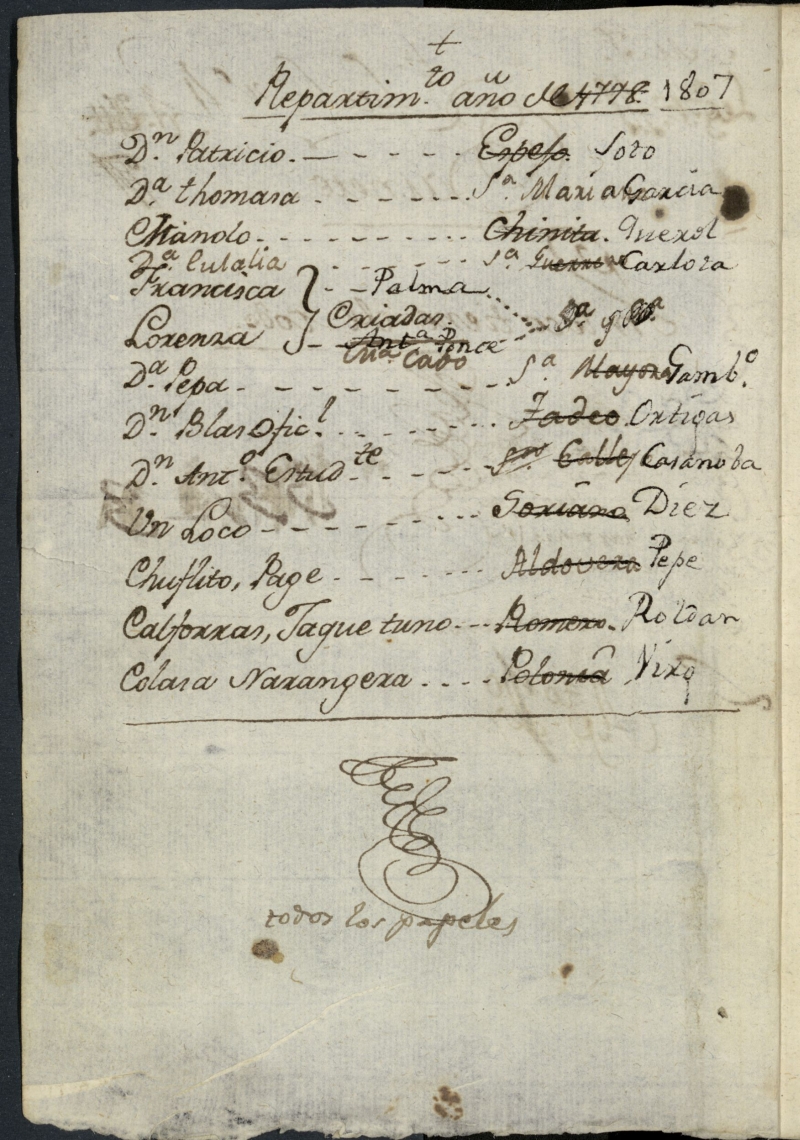 +
Repartim.to año de 1778. 1807
D.n Patricio. — - - - - Espejo. Soto
D.a thomasa - - - - - - - S.a Maria Garcia
Manolo - - - - - - - - Chinita. Querol
D.a Eulalia - - - - - - S.a Carlota
Francisca } - - Palma
Criadas.
Lorenza - - Ant.a Ponce
Cabo
D.a Pepa - - - - - - - - S.a Mayora Gamb.o
D.n Blas ofic.l - - - - - - Tadeo Ortigas
D.n Ant.o Estud.te - - - - - Calle Casanoba
Un Loco - - - - - - - - Soriano Diez
Chuflito, Page - - - - - Aldovera Pepe
Calforras, Taque tuno - - - Romero. Roldan
Colasa Narangera . . . . Polonia Virg
todos los papeles